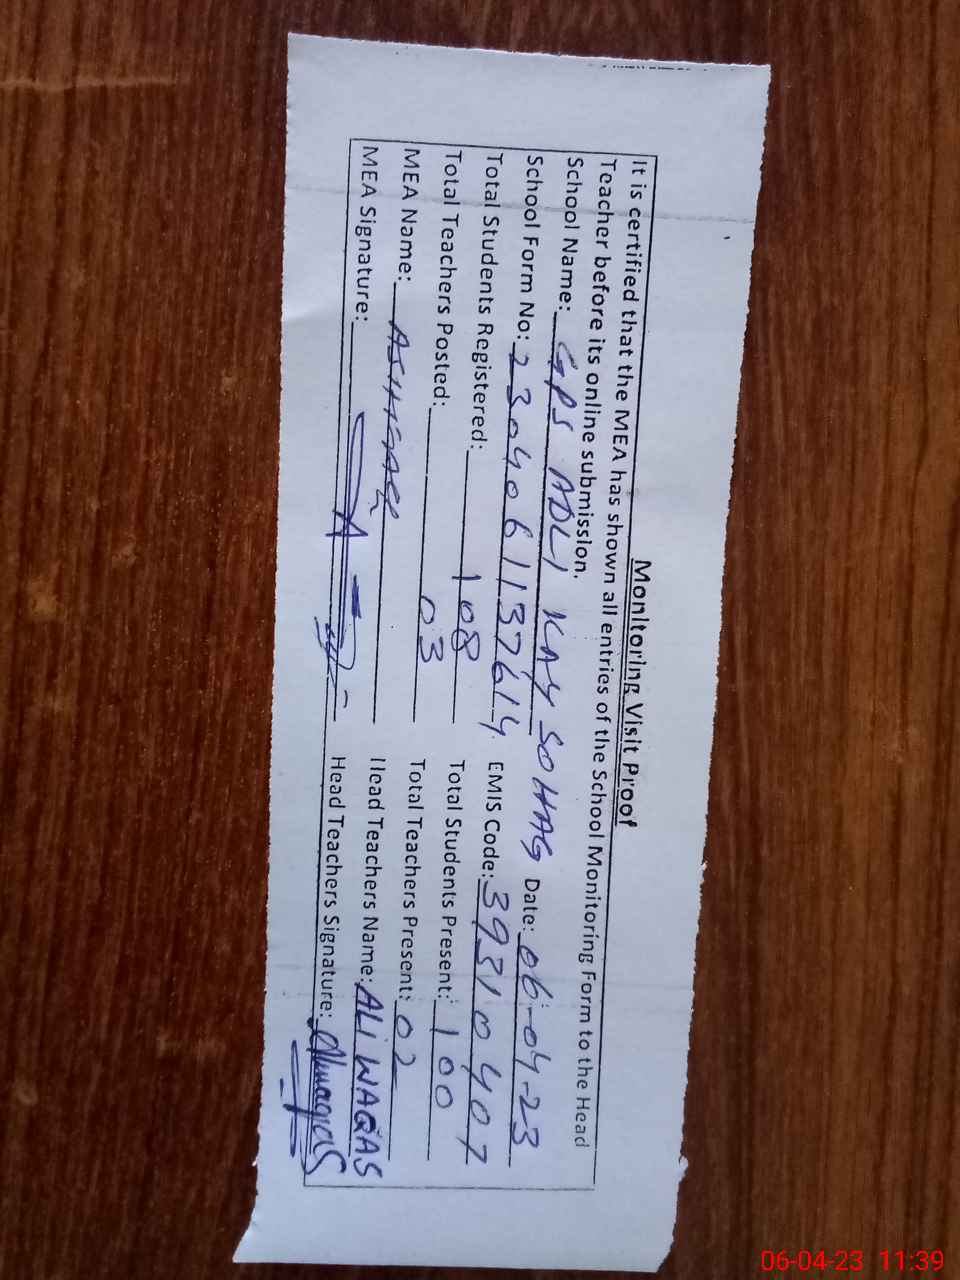 Monitoring Visit Proof
It is certified that the MEA has shown all entries of the School Monitoring Form to the Head
Teacher before its online submission.
School Name: GPS ADLI KAY SOHAG Date: 06-04-23
School Form No: 2304061137614 EMIS Code: 39310407
Total Students Registered: 108 Total Students Present: 100
Total Teachers Posted: 03 Total Teachers Present: 02
MEA Name: Head Teachers Name: ALI WAQAS
MEA Signature: Head Teachers Signature: Aliwaqas
06-04-23 11:39